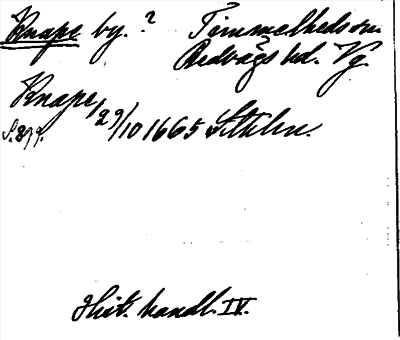 Knape by. ? Timmelheds sn.
Redvägs hd. Vg.
Knape, 29/10 1665 Sthlm.
S. 299.
Hist. handl. IV.